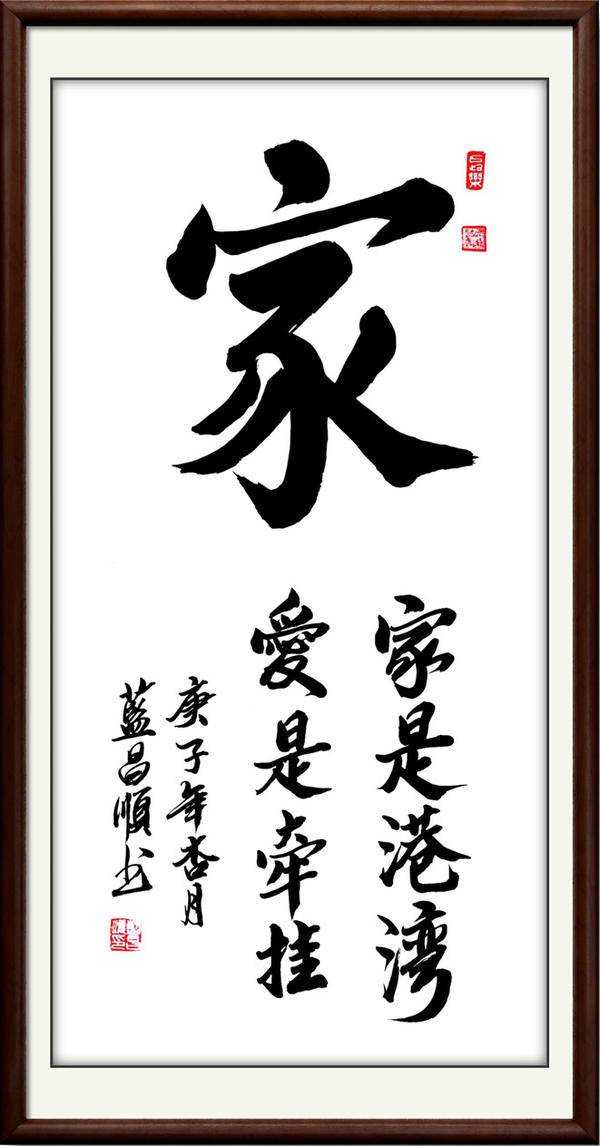 家
家是港湾
愛是牵挂
庚子年杏月
藍昌順书